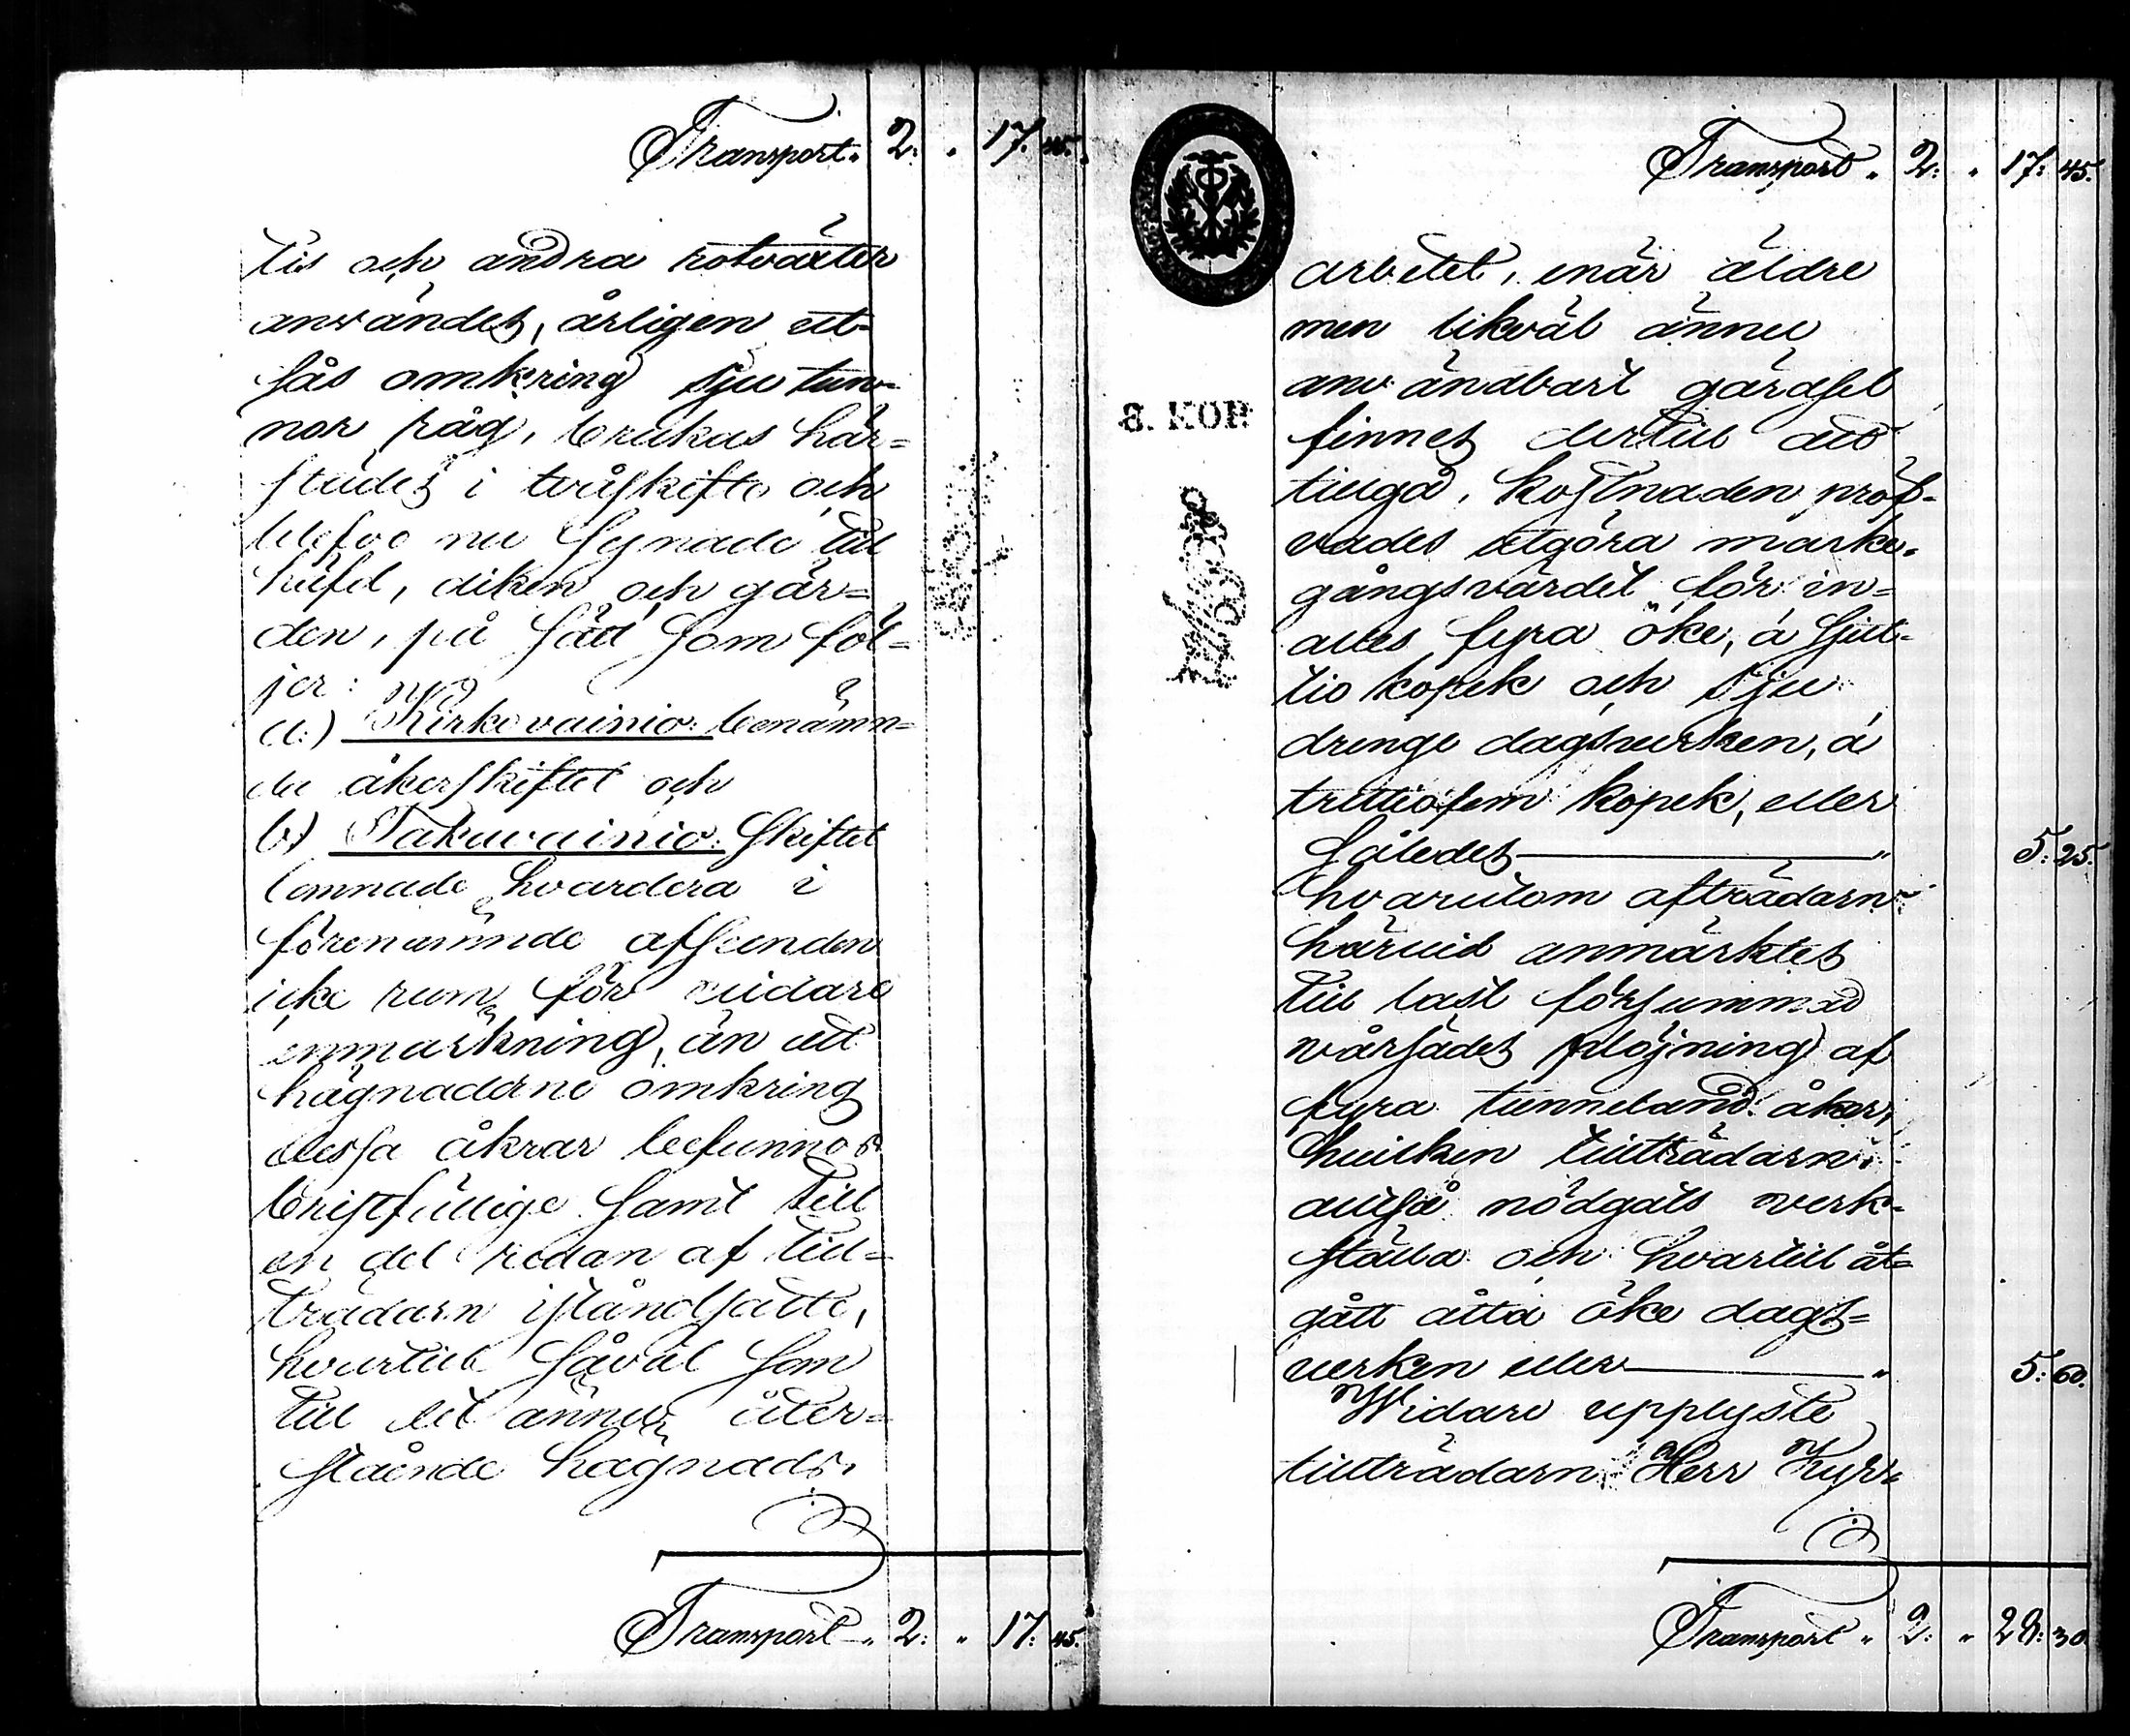 Transport „ 2: „ 17: 45.
tis och andra rotväxter
användes, årligen ut=
sås omkring sju tun=
nor råg, brukas här=
städes i tvåskifte och
blefvo nu synade till
häfd, diken och gär=
den, på sätt som föl=
jer:
a.) Kirkovainio benämn=
da åkerskiftet och
b) Takavainio skiftet
lemnade hvardera i
förenämnde afseenden
icke rum för vidare
anmärkning, än att
hägnaderne omkring
dessa åkrar befunnos
bristfällige samt till
en del redan af till=
trädarn iståndsatte,
hvartill såväl som
till det ännu åter=
stående hägnads
Transport „ 2: „ 17: 45.
Transport „ 2: „ 17: 45.
8. KOP.
arbetet, enär äldre
men likväl ännu
användbart gärdsel
finnes dertill att
tillgå, kostnaden pröf=
vades utgöra marke=
gångsvärdet för in=
alles fyra öke, á sjut=
tio kopek och sju
drenge dagsverken, á
trettiofem kopek, eller
således „ 5: 25.
hvarutom afträdarn
härvid anmärktes
till last försummad
vårsädes plöjning af
fyra tunneland åker,
hvilken tillträdarn
altså nödgats verk=
ställa och hvartill åt=
gått åtta öke dags=
verken eller „ 5: 60.
Widare upplyste
tillträdarn, Herr Kyr=
Transport „ 2: „ 28: 30.